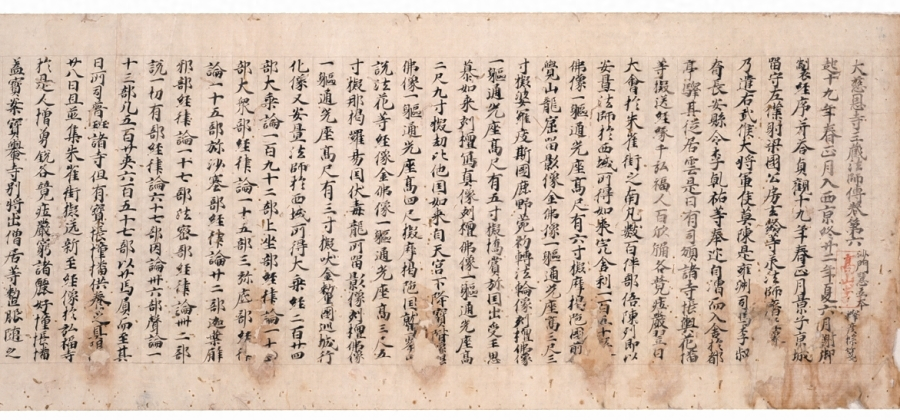 大慈恩寺三藏法師傳卷第六
起十九年春正月入西京終廿二年夏六月謝御
製經序并答貞觀十九年春正月景子京城
留守左僕射梁國公房玄齡等承法師
乃遣右武侯大將軍侯莫陳寔雍州司馬李叔
眘長安縣令李乾祐等奉迎自漕而入舍於都
亭驛其從若雲是日有司頒諸寺具帳輿花幡
等擬送經像於弘福人百欣踊各競莊嚴翌日
大會於朱雀街之南凡數百件部伍陳列即以
安置法師於西域所得如來完舍利一百五十
佛像一軀通光座高尺有六寸擬摩揭陀國前
覺山龍窟留影像金佛像一軀通光座高三尺三
寸擬婆羅痆斯國鹿野苑初轉法輪像刻檀佛像
一軀通光座高尺有五寸擬憍賞弥國出愛王思
慕如來刻檀寫真像刻檀佛像一軀通光座高
二尺九寸擬劫比他國如來自天宮下降寶階
佛像一軀通光座高四尺擬摩揭陀國鷲峯山
說法花等經像金佛像一軀通光座高三尺五
寸擬那揭羅曷國伏毒龍所留影像刻檀佛像
一軀通光座高尺有三寸擬吠舍釐國巡城行
化像又安置法師於西域所得大乘經二百廿四
部大乘論一百九十二部上坐部經律論一十四
部大衆部經律論一十五部三弥底部經律
論一十五部弥沙塞部經律論廿二部迦葉臂
耶部經律論一十七部法密部經律論卌二部
說一切有部經律論六十七部因論卅六部聲論一
十三部凡五百廿夾六百五十七部以廿馬負而至其
日所司普班諸寺但有寶帳幢幡供養之具
廿八日旦並集朱雀街擬迎新至經像於弘福寺
於是人增勇銳各競莊嚴窮諸麗好幢帳幡
蓋寶案寶轝寺別將出僧尼等整服隨之